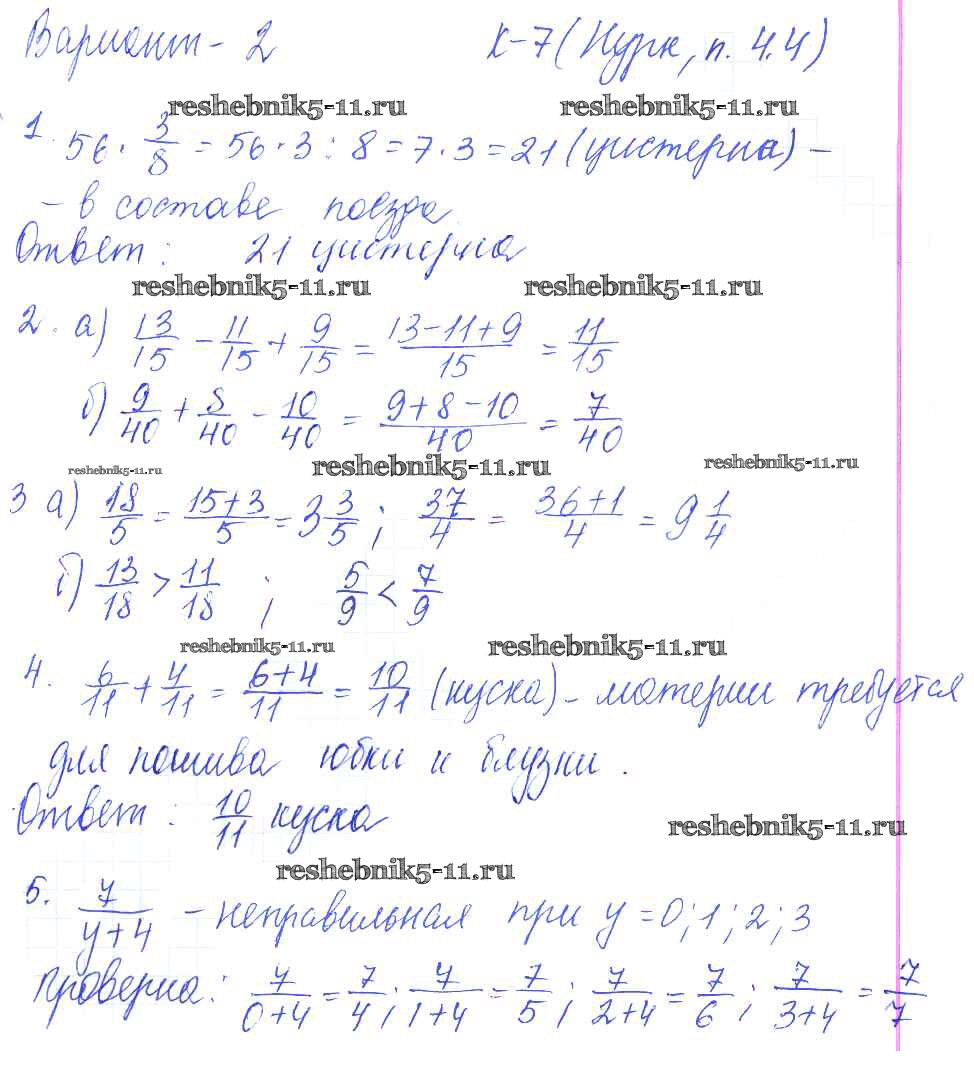 Вариант - 2 К-7 (Нурк, п. 4.4)
reshebnik5-11.ru reshebnik5-11.ru
1. 56 · 3/8 = 56 · 3 : 8 = 7 · 3 = 21 (цистерна) –
– в составе поезда
Ответ: 21 цистерна
reshebnik5-11.ru reshebnik5-11.ru
2. а) 13/15 – 11/15 + 9/15 = (13–11+9)/15 = 11/15
б) 9/40 + 8/40 – 10/40 = (9+8–10)/40 = 7/40
reshebnik5-11.ru reshebnik5-11.ru reshebnik5-11.ru
3 а) 18/5 = (15+3)/5 = 3 3/5 ; 37/4 = (36+1)/4 = 9 1/4
б) 13/18 > 11/18 ; 5/9 < 7/9
reshebnik5-11.ru reshebnik5-11.ru
4. 6/11 + 4/11 = (6+4)/11 = 10/11 (куска) – материи требуется
для пошива юбки и блузки.
Ответ: 10/11 куска
reshebnik5-11.ru
reshebnik5-11.ru
5. 7/(y+4) – неправильная при y = 0; 1; 2; 3
проверка: 7/(0+4) = 7/4; 7/(1+4) = 7/5; 7/(2+4) = 7/6; 7/(3+4) = 7/7